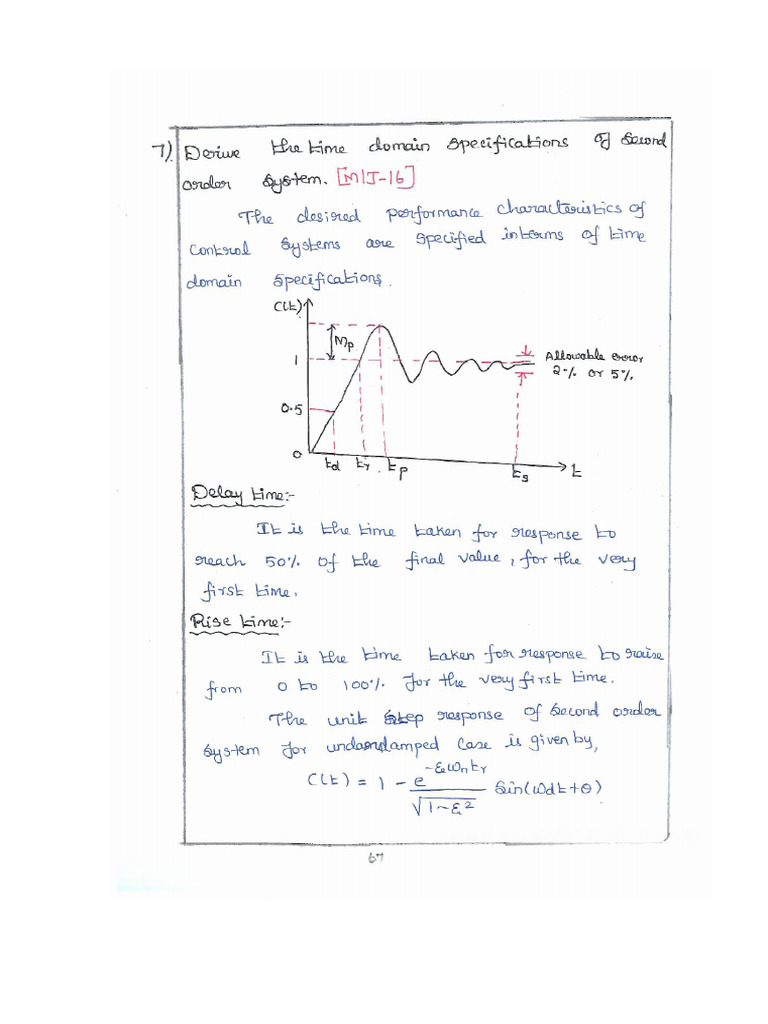 7). Derive the time domain specifications of second
order system. [M/J-16]
The desired performance characteristics of
control systems are specified interms of time
domain specifications.
C(t)
Mp
1
Allowable error
2% or 5%
0.5
0
td tr . tp ts t
Delay time:-
It is the time taken for response to
reach 50% of the final value, for the very
first time.
Rise time:-
It is the time taken for response to raise
from 0 to 100% for the very first time.
The unit step response of second order
system for undamped case is given by,
C(t) = 1 - e^{-ξωn tr} / √(1-ξ²) Sin(ωdt+θ)
67